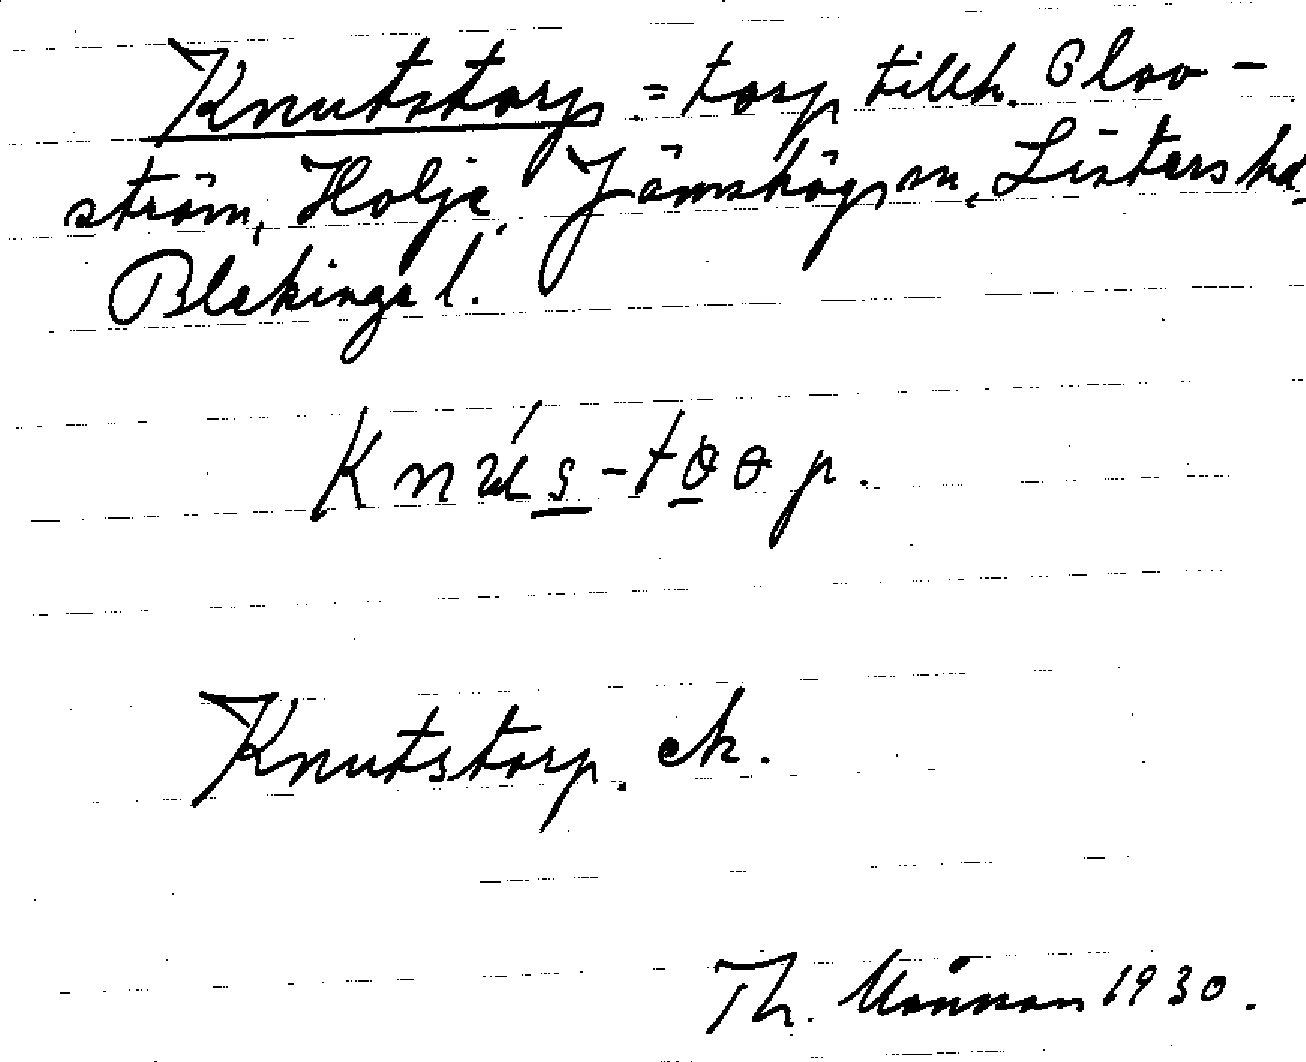 Knutstorp = torp tillh. Olov-
ström, Holje, Jämshögs sn, Listers hd.
Blekinge l.
Knus-tɵɵp.
Knutstorp. ek.
Th. 1930.